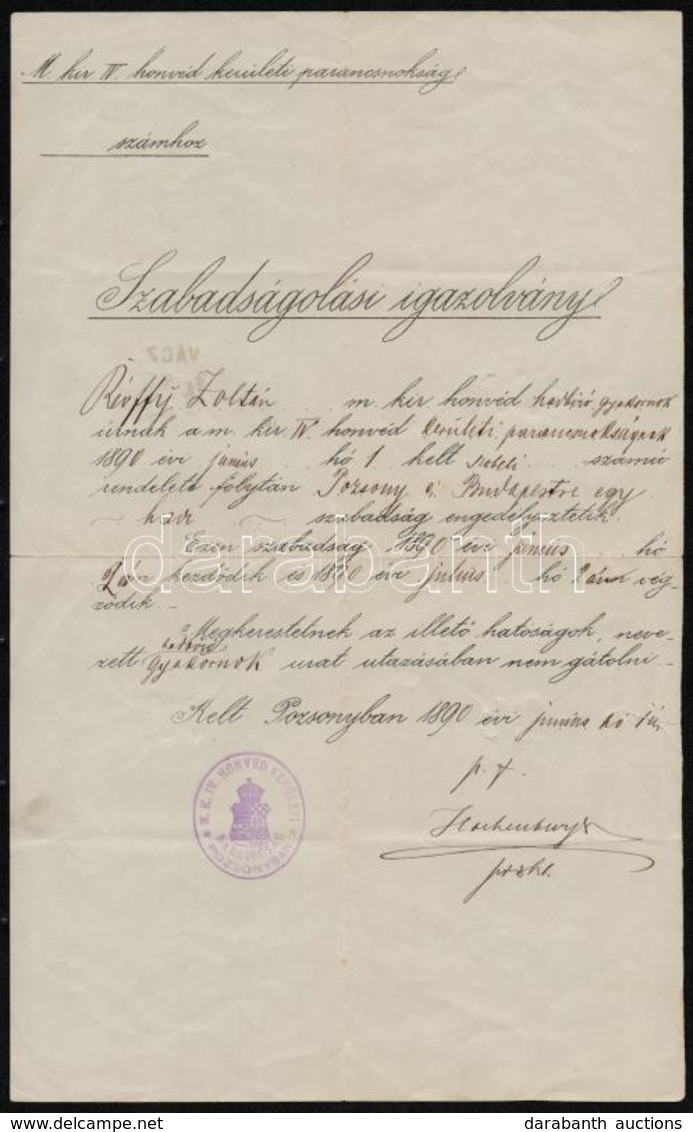 M. kir IV. honvéd kerületi parancsnokság
számhoz
Szabadságolási igazolvány
VÁCZ
Révffy Zoltán m. kir. honvéd hadbiró gyakornok
úrnak a m. kir. IV. honvéd kerületi parancsnokságnak
1890 évi június hó 1. kelt számú
rendelete folytán Pozsony és Budapestre egy
~ havi ~ szabadság engedélyeztetik.
Ezen szabadság 1890 évi június hó
2án kezdödik és 1890 évi július hó 2án vég-
zödik. -
Megkerestetnek az illetö hatóságok, neve-
hadbiró
zett gyakornok urat utazásában nem gátolni. -
Kelt Pozsonyban 1890 évi június hó 1én
p. t.
M. K. IV. HONVÉD KERÜLETI
POZSONYBAN
darabanth
www.darabanth.com
darabanth auctions